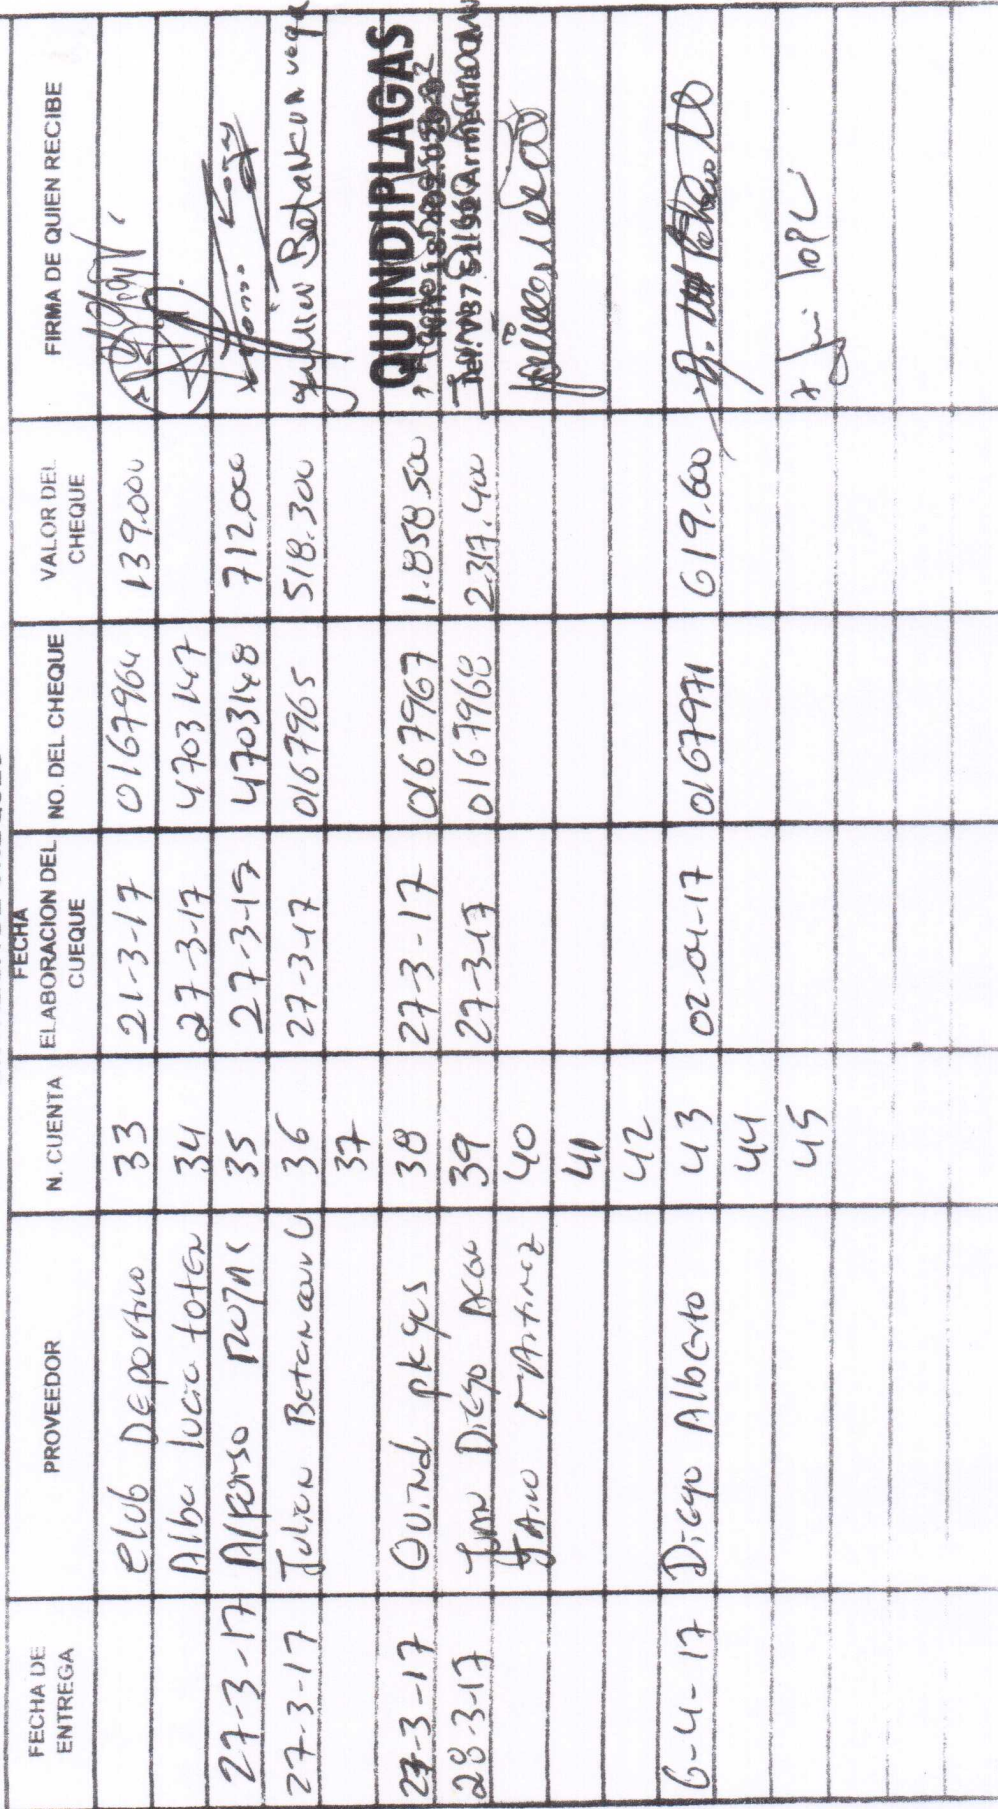 FECHA DE ENTREGA PROVEEDOR N. CUENTA FECHA ELABORACION DEL CUEQUE NO. DEL CHEQUE VALOR DEL CHEQUE FIRMA DE QUIEN RECIBE
Club Deportivo 33 21-3-17 0167964 139.000
Alba lucia 34 27-3-17 4703147
27-3-17 Alfonso 35 27-3-17 4703148 712.000
27-3-17 Julian Betancur 36 27-3-17 0167965 518.300 Julian Betancur vega
37
27-3-17 Quind plagas 38 27-3-17 0167967 1.858.500 QUINDIPLAGAS
28-3-17 Juan Diego 39 27-3-17 0167968 2.317.400
Martinez 40
41
42
6-4-17 Diego Alberto 43 02-04-17 0167971 619.600
44
45